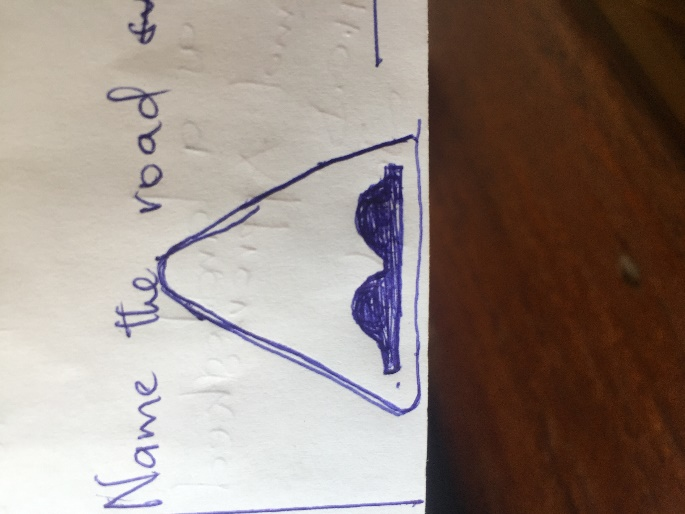 Name the road